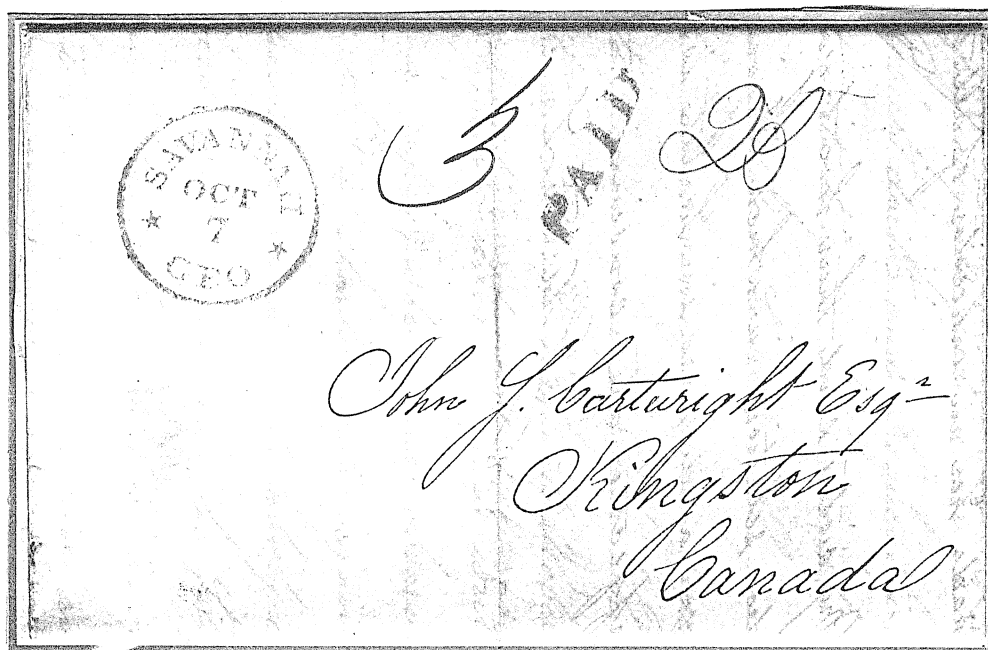 SAVANNAH
OCT
7
GEO
PAID
John S. Cartwright Esqr
Kingston
Canada